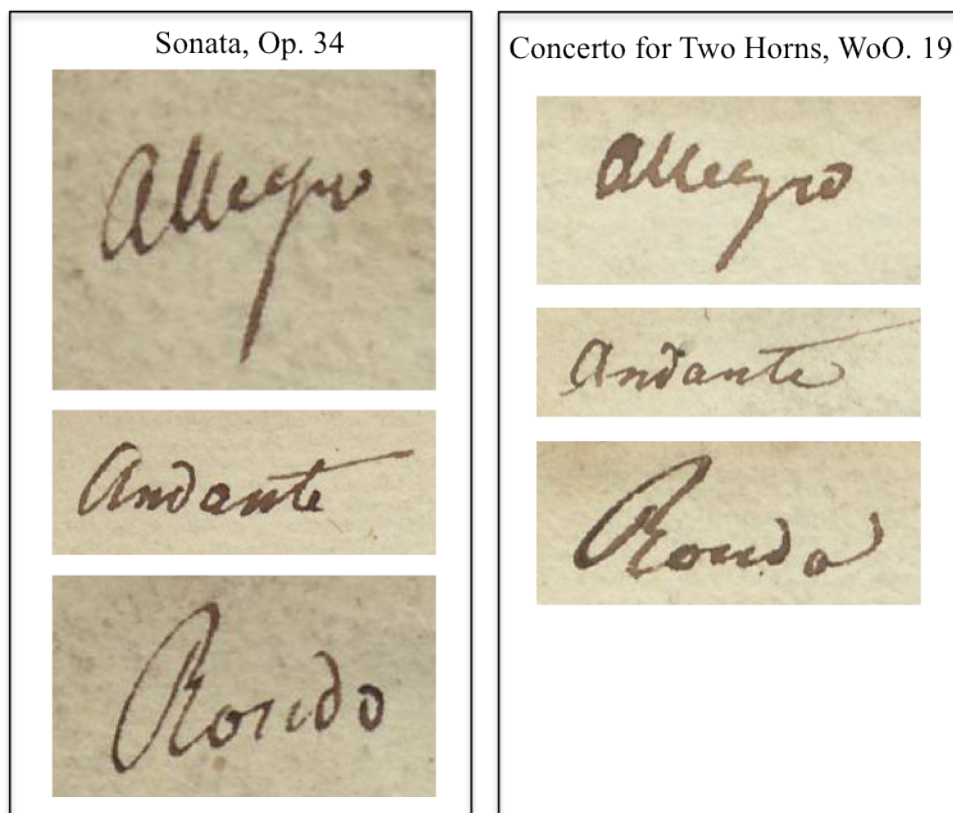 Sonata, Op. 34
Allegro
Andante
Rondo
Concerto for Two Horns, WoO. 19
Allegro
Andante
Rondo